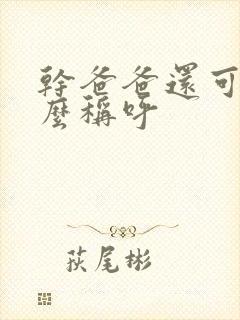 幹爸爸還可
麼稱呼
荻尾彬